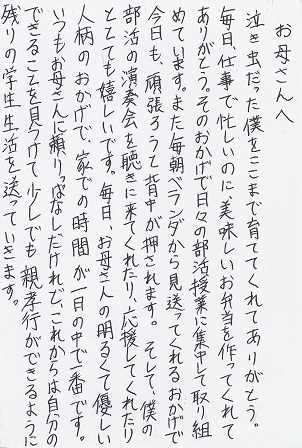 お母さんへ
泣き虫だった僕をここまで育ててくれてありがとう。
毎日、仕事で忙しいのに美味しいお弁当を作ってくれて
ありがとう。そのおかげで日々の部活授業に集中して取り組
めています。また毎朝ベランダから見送ってくれるおかげで
今日も、頑張ろうと背中が押されます。そして、僕の
部活の演奏会を聴きに来てくれたり、応援してくれたり
とても嬉しいです。毎日、お母さんの明るくて優しい
人柄のおかげで、家での時間が一日の中で一番です。
いつもお母さんに頼りっぱなしだけれど、これからは自分の
できることを見つけて少しでも親孝行ができるように
残りの学生生活を送っていきます。